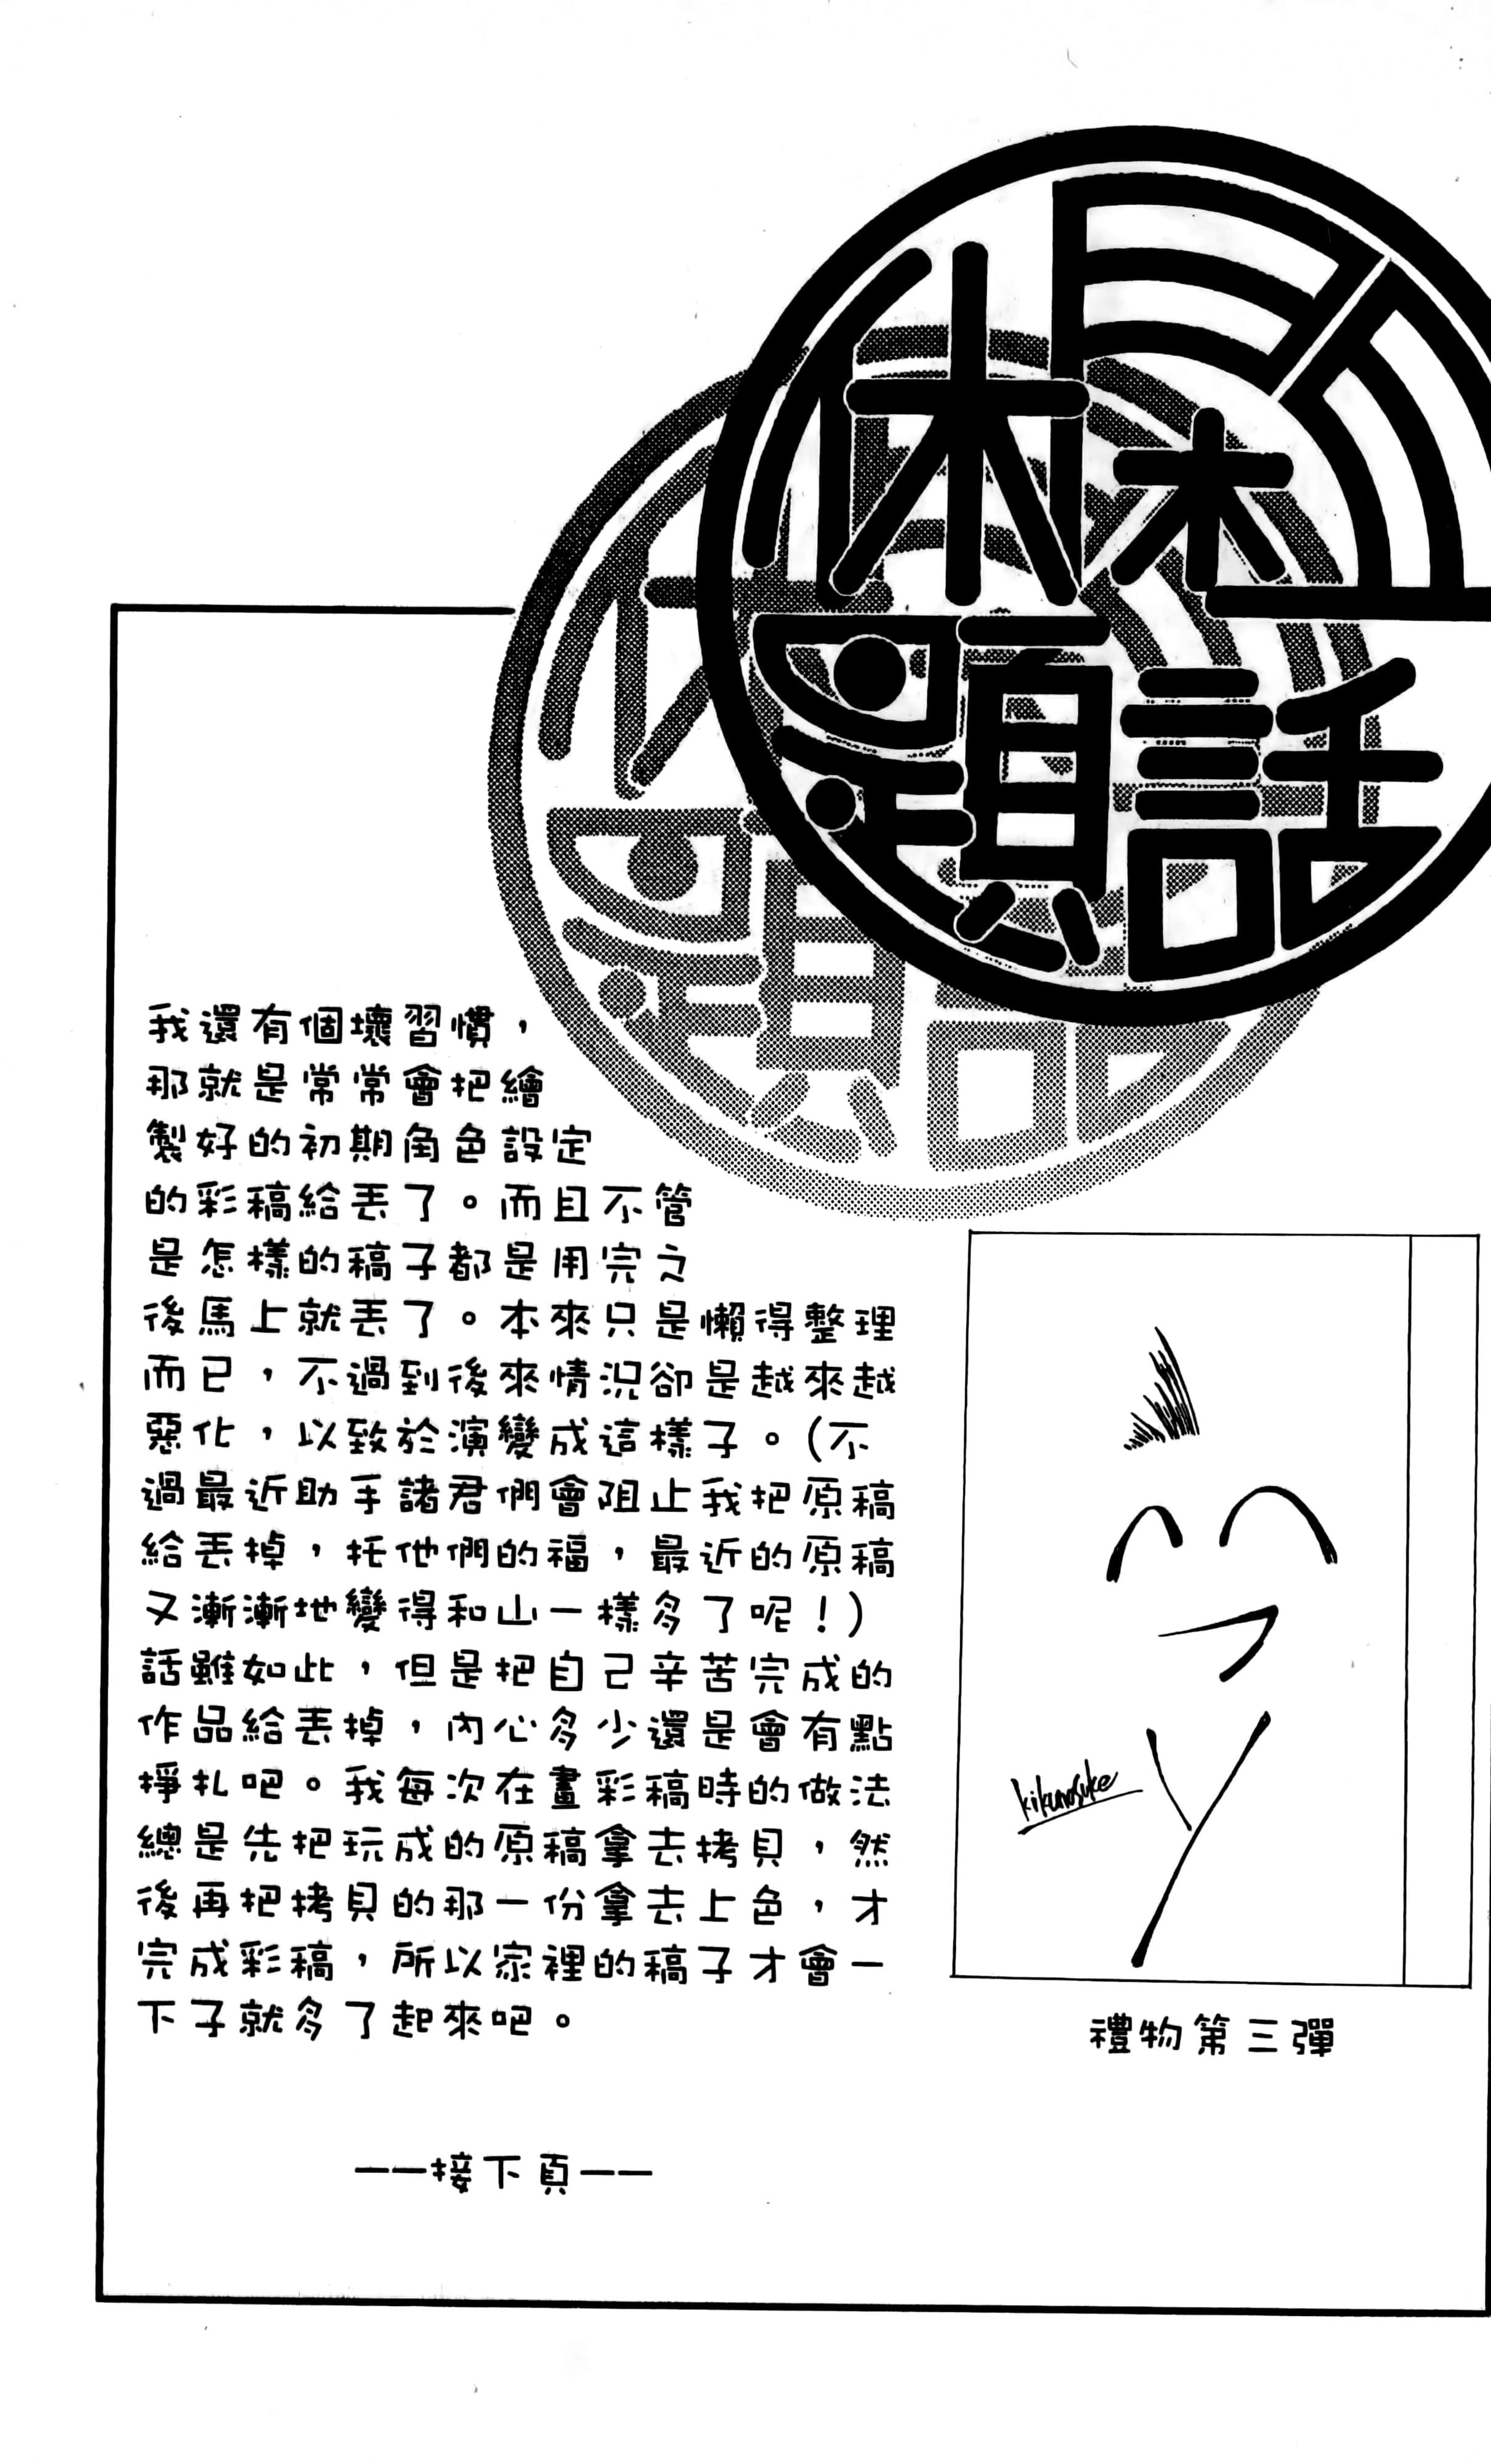 休題
閑話
我還有個壞習慣，
那就是常常會把繪
製好的初期角色設定
的彩稿給丟了。而且不管
是怎樣的稿子都是用完之
後馬上就丟了。本來只是懶得整理
而已，不過到後來情況卻是越來越
惡化，以致於演變成這樣子。(不
過最近助手諸君們會阻止我把原稿
給丟掉，托他們的福，最近的原稿
又漸漸地變得和山一樣多了呢！)
話雖如此，但是把自己辛苦完成的
作品給丟掉，內心多少還是會有點
掙扎吧。我每次在畫彩稿時的做法
總是先把玩成的原稿拿去拷貝，然
後再把拷貝的那一份拿去上色，才
完成彩稿，所以家裡的稿子才會一
下子就多了起來吧。
——接下頁——
kikunosuke
禮物第三彈